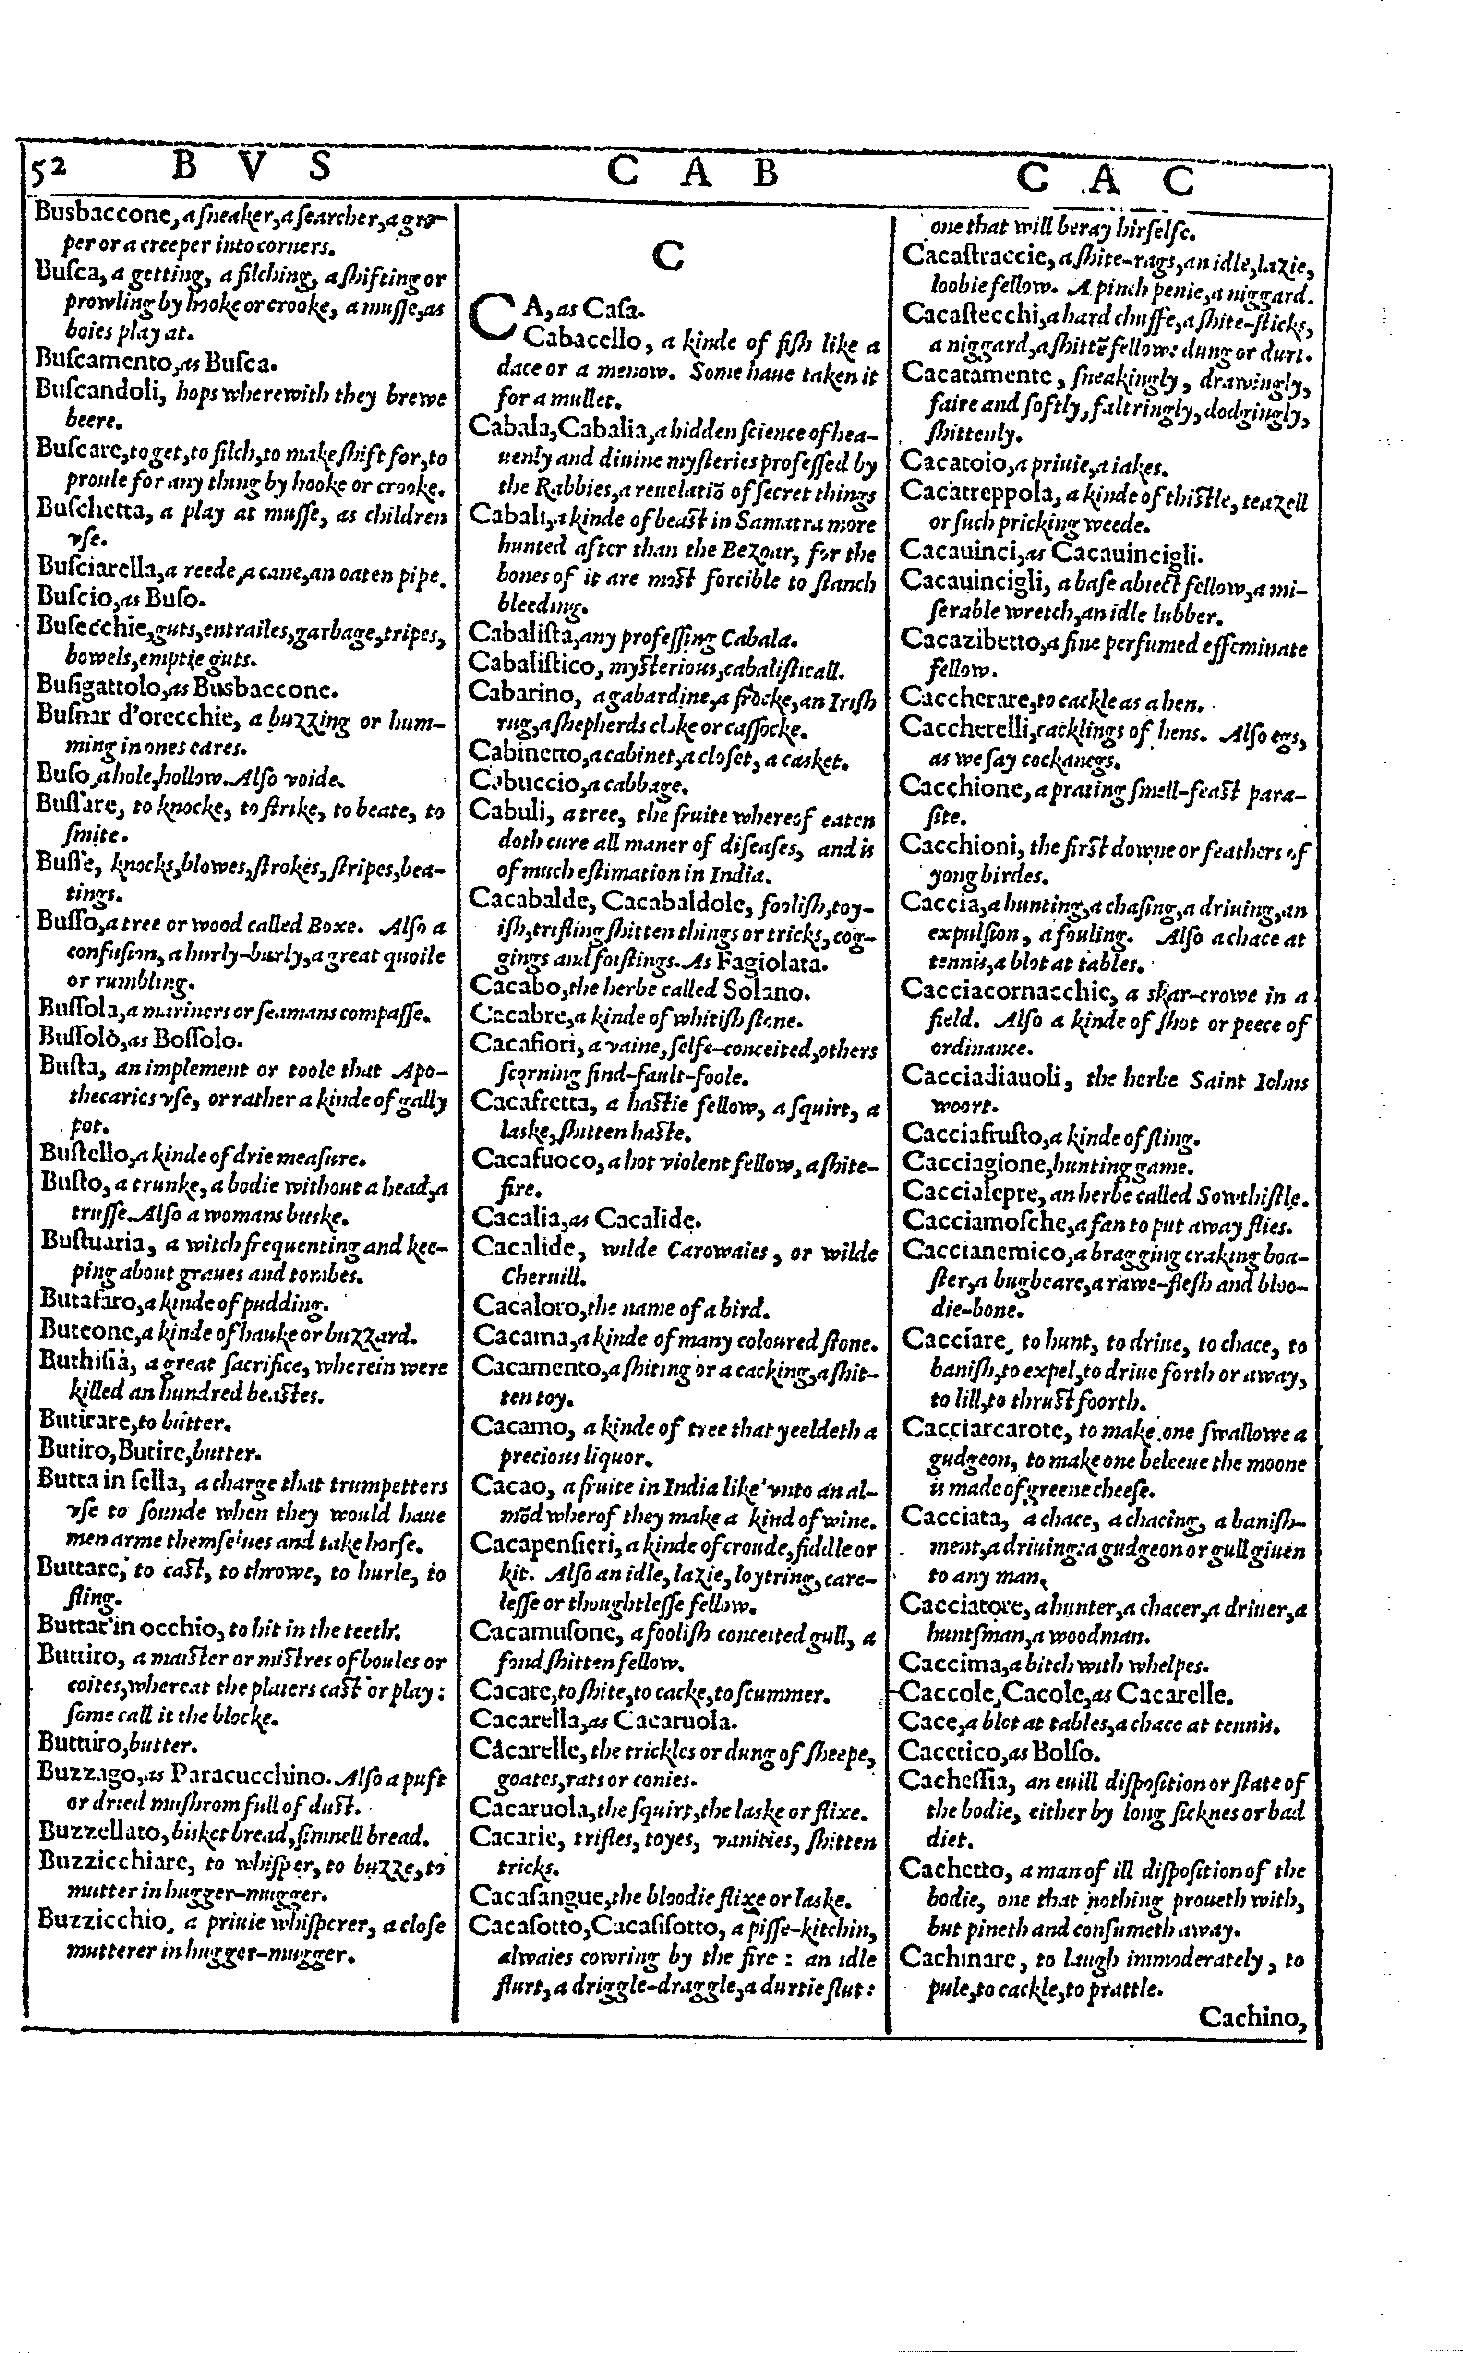 52 B V S
C A B
C A C
Busbaccone, a sneaker, a searcher, a gro-
per or a creeper into corners.
Buſca, a getting, a filching, a ſhifting or
prowling by hooke or crooke, a muſſe, as
boies play at.
Buſcamento, as Buſca.
Buſcandoli, hops wherewith they brewe
beere.
Buſcare, to get, to filch, to make ſhift for, to
proule for any thing by hooke or crooke.
Buſchetta, a play at muſſe, as children
vſe.
Buſciarella, a reede, a cane, an oaten pipe.
Buſcio, as Buſo.
Buſecchie, guts, entrailes, garbage, tripes,
bowels, emptie guts.
Buſigattolo, as Busbaccone.
Buſnar d'orecchie, a buzzing or hum-
ming in ones eares.
Buſo, a hole, hollow. Alſo voide.
Buſſare, to knocke, to ſtrike, to beate, to
ſmite.
Buſſe, knocks, blowes, ſtrokes, ſtripes, bea-
tings.
Buſſo, a tree or wood called Boxe. Alſo a
confuſion, a hurly-burly, a great quoile
or rumbling.
Buſſola, a mariners or ſeamans compaſſe.
Buſſolò, as Boſſolo.
Buſta, an implement or toole that Apo-
thecaries vſe, or rather a kinde of gally
pot.
Buſtello, a kinde of drie meaſure.
Buſto, a trunke, a bodie without a head, a
truſſe. Alſo a womans buske.
Buſtuaria, a witch frequenting and kee-
ping about graues and tombes.
Butafaro, a kinde of pudding.
Buteone, a kinde of hauke or buzzard.
Buthiſià, a great ſacrifice, wherein were
killed an hundred beaſtes.
Butirare, to butter.
Butiro, Butire, butter.
Butta in ſella, a charge that trumpetters
vſe to ſounde when they would haue
men arme themſelues and take horſe.
Buttare, to caſt, to throwe, to hurle, to
fling.
Buttar in occhio, to hit in the teeth.
Buttiro, a maiſter or miſtres of boules or
coites, whereat the plaiers caſt or play:
ſome call it the blocke.
Buttiro, butter.
Buzzago, as Paracucchino. Alſo a puft
or dried muſhrom full of duſt.
Buzzellato, bisket bread, ſimnell bread.
Buzzicchiare, to whiſper, to buzze, to
mutter in hugger-mugger.
Buzzicchio, a priuie whiſperer, a cloſe
mutterer in hugger-mugger.
C
CA, as Caſa.
Cabacello, a kinde of fiſh like a
dace or a menow. Some haue taken it
for a mullet.
Cabala, Cabalia, a hidden ſcience of hea-
uenly and diuine myſteries profeſſed by
the Rabbies, a reuelatiō of ſecret things
Cabali, a kinde of beaſt in Samatra more
hunted after than the Bezoar, for the
bones of it are moſt forcible to ſtanch
bleeding.
Cabaliſta, any profeſſing Cabala.
Cabaliſtico, myſterious, cabaliſticall.
Cabarino, a gabardine, a frocke, an Iriſh
rug, a ſhepherds cloke or caſſocke.
Cabinetto, a cabinet, a cloſet, a casket.
Cabuccio, a cabbage.
Cabuli, a tree, the fruite whereof eaten
doth cure all maner of diſeaſes, and is
of much eſtimation in India.
Cacabalde, Cacabaldole, fooliſh, toy-
iſh, trifling ſhitten things or tricks, cog-
gings and foiſtings. As Fagiolata.
Cacabo, the herbe called Solano.
Cacabre, a kinde of whitiſh ſtone.
Cacafiori, a vaine, ſelfe-conceited, others
ſcorning find-fault-foole.
Cacafretta, a haſtie fellow, a ſquirt, a
laske, ſhitten haſte.
Cacafuoco, a hot violent fellow, a ſhite-
fire.
Cacalia, as Cacalide.
Cacalide, wilde Carowaies, or wilde
Cheruill.
Cacaloro, the name of a bird.
Cacama, a kinde of many coloured ſtone.
Cacamento, a ſhiting or a cacking, a ſhit-
ten toy.
Cacamo, a kinde of tree that yeeldeth a
precious liquor.
Cacao, a fruite in India like vnto an al-
mōd wherof they make a kind of wine.
Cacapenſieri, a kinde of croude, fiddle or
kit. Alſo an idle, lazie, loytring, care-
leſſe or thoughtleſſe fellow.
Cacamuſone, a fooliſh conceited gull, a
fond ſhitten fellow.
Cacare, to ſhite, to cacke, to ſcummer.
Cacarella, as Cacaruola.
Cacarelle, the trickles or dung of ſheepe,
goates, rats or conies.
Cacaruola, the ſquirt, the laske or flixe.
Cacarie, trifles, toyes, vanities, ſhitten
tricks.
Cacaſangue, the bloodie flixe or laske.
Cacaſotto, Cacaſiſotto, a piſſe-kitchin,
alwaies cowring by the fire: an idle
flurt, a driggle-draggle, a durtie ſlut:
one that will beray hirſelfe.
Cacaſtraccie, a ſhite-rags, an idle, lazie,
loobie fellow. A pinch penie, a niggard.
Cacaſtecchi, a hard chuffe, a ſhite-ſticks,
a niggard, a ſhittē fellow: dung or durt.
Cacatamente, ſneakingly, drawingly,
faire and ſoftly, faltringly, dodgingly,
ſhittenly.
Cacatoio, a priuie, a iakes.
Cacatreppola, a kinde of thiſtle, teazell
or ſuch pricking weede.
Cacauinci, as Cacauincigli.
Cacauincigli, a baſe abiect fellow, a mi-
ſerable wretch, an idle lubber.
Cacazibetto, a fine perfumed effeminate
fellow.
Caccherare, to cackle as a hen.
Caccherelli, cacklings of hens. Alſo egs,
as we ſay cockanegs.
Cacchione, a prating ſmell-feaſt para-
ſite.
Cacchioni, the firſt downe or feathers of
yong birdes.
Caccia, a hunting, a chaſing, a driuing, an
expulſion, a fouling. Alſo a chace at
tennis, a blot at tables.
Cacciacornacchie, a skar-crowe in a
field. Alſo a kinde of ſhot or peece of
ordinance.
Cacciadiauoli, the herbe Saint Iohns
woort.
Cacciafruſto, a kinde of ſling.
Cacciagione, hunting game.
Caccialepre, an herbe called Sowthiſtle.
Cacciamoſche, a fan to put away flies.
Caccianemico, a bragging craking boa-
ſter, a bugbeare, a rawe-fleſh and bloo-
die-bone.
Cacciare, to hunt, to driue, to chace, to
baniſh, to expel, to driue forth or away,
to lill, to thruſt foorth.
Cacciarcarote, to make one ſwallowe a
gudgeon, to make one beleeue the moone
is made of greene cheeſe.
Cacciata, a chace, a chacing, a baniſh-
ment, a driuing: a gudgeon or gull giuen
to any man.
Cacciatore, a hunter, a chacer, a driuer, a
huntſman, a woodman.
Caccima, a bitch with whelpes.
Caccole, Cacole, as Cacarelle.
Cace, a blot at tables, a chace at tennis.
Cacetico, as Bolſo.
Cacheſſia, an euill diſpoſition or ſtate of
the bodie, either by long ſicknes or bad
diet.
Cachetto, a man of ill diſpoſition of the
bodie, one that nothing proueth with,
but pineth and conſumeth away.
Cachinare, to laugh immoderately, to
pule, to cackle, to prattle.
Cachino,